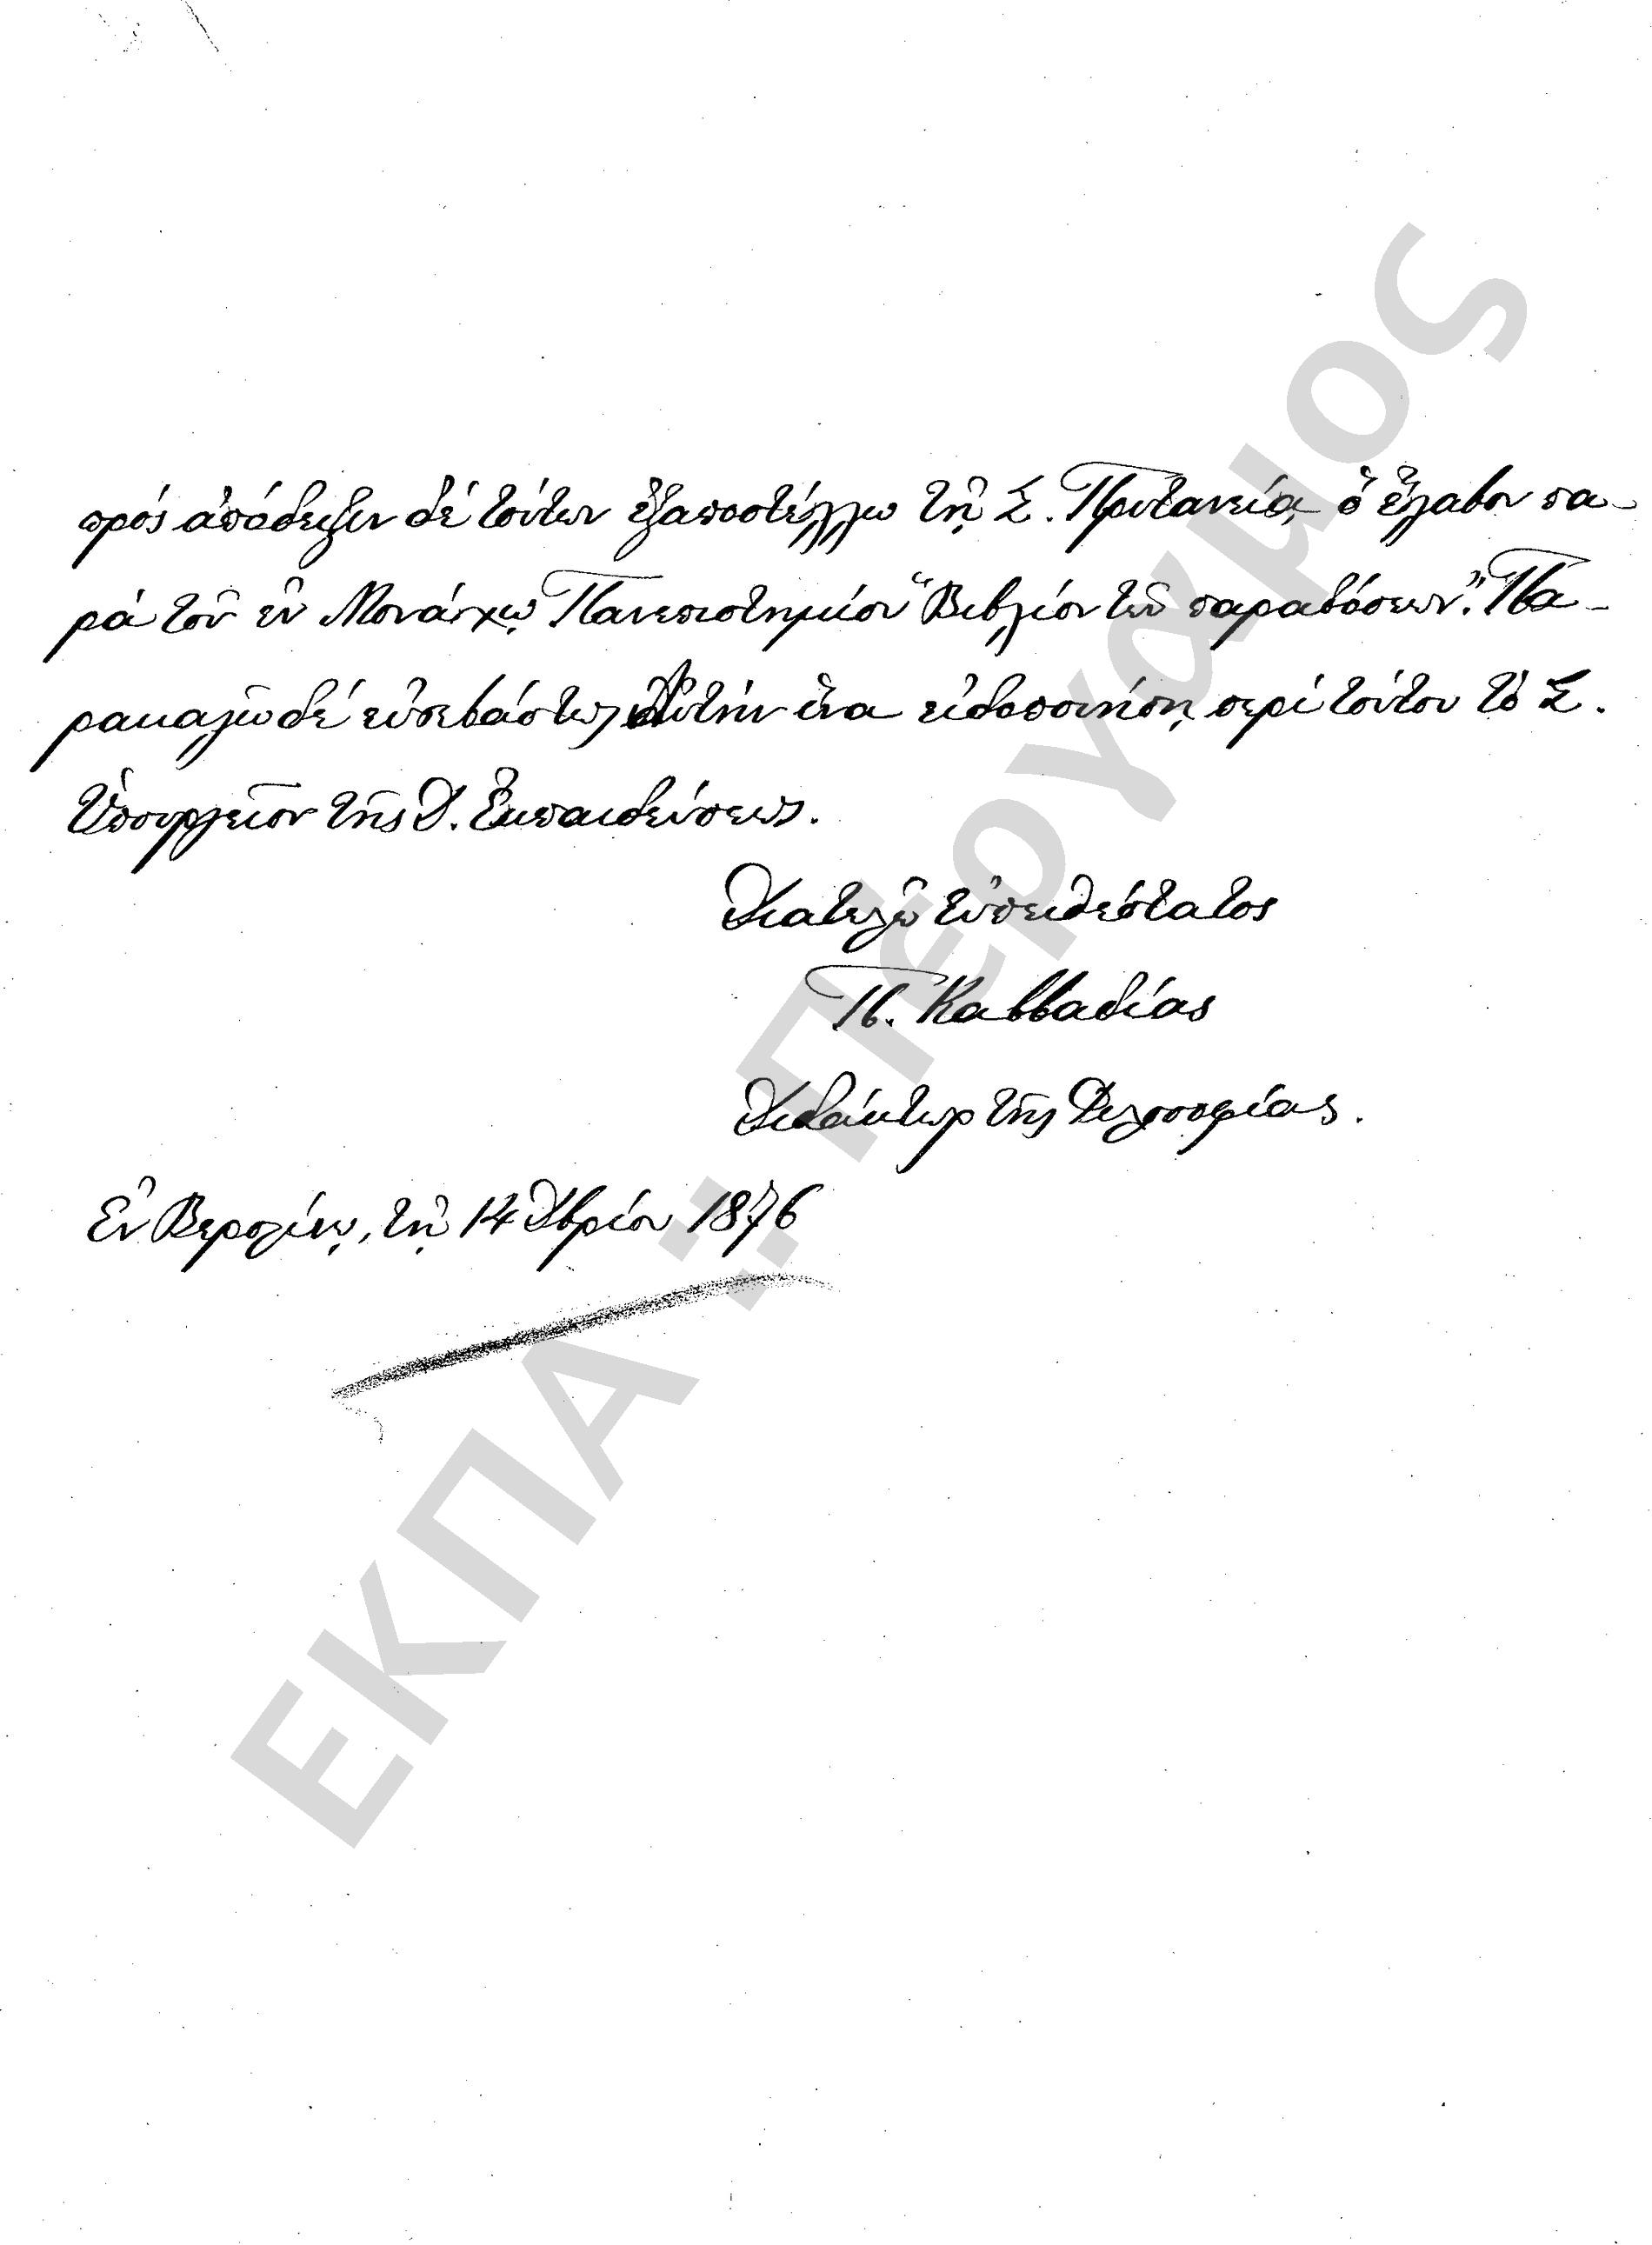 πρός ἀπόδειξιν δέ τούτων ἐξαποστέλλω τῇ Σ. Πρυτανείᾳ ὅ ἔλαβον πα-
ρά τοῦ ἐν Μονάχῳ Πανεπιστημίου "Βιβλίον τῶν παραδόσεων". Πα-
ρακαλῶ δέ εὐσεβάστως Αὐτήν ἵνα εἰδοποιήσῃ περί τούτου τό Σ.
Ὑπουργεῖον τῆς Δ. Ἐκπαιδεύσεως.
Διατελῶ εὐπειθέστατος
Π. Καββαδίας
Διδάκτωρ τῆς Φιλοσοφίας.
Ἐν Βερολίνῳ, τῇ 14 1876
ΕΚΠΑ :: Πέργαμος